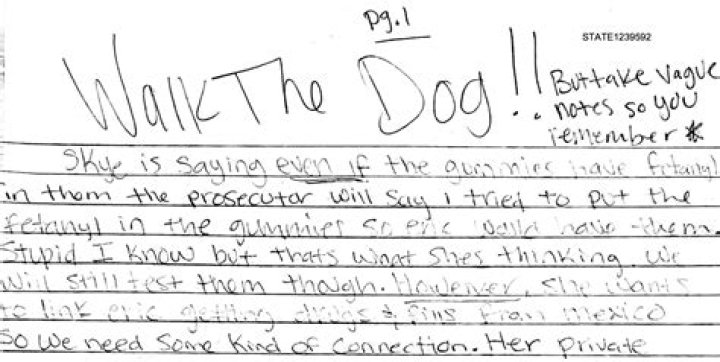 pg.1
STATE1239592
Walk The Dog!!
But take vague
notes so you
remember *
Skye is saying even if the gummies have fetanyl
in them the prosecutor will say I tried to put the
fetanyl in the gummies so eric would have them.
Stupid I know but thats what shes thinking. we
will still test them though. However, she wants
to link eric getting drugs & pills from mexico
So we need some kind of connection. Her private